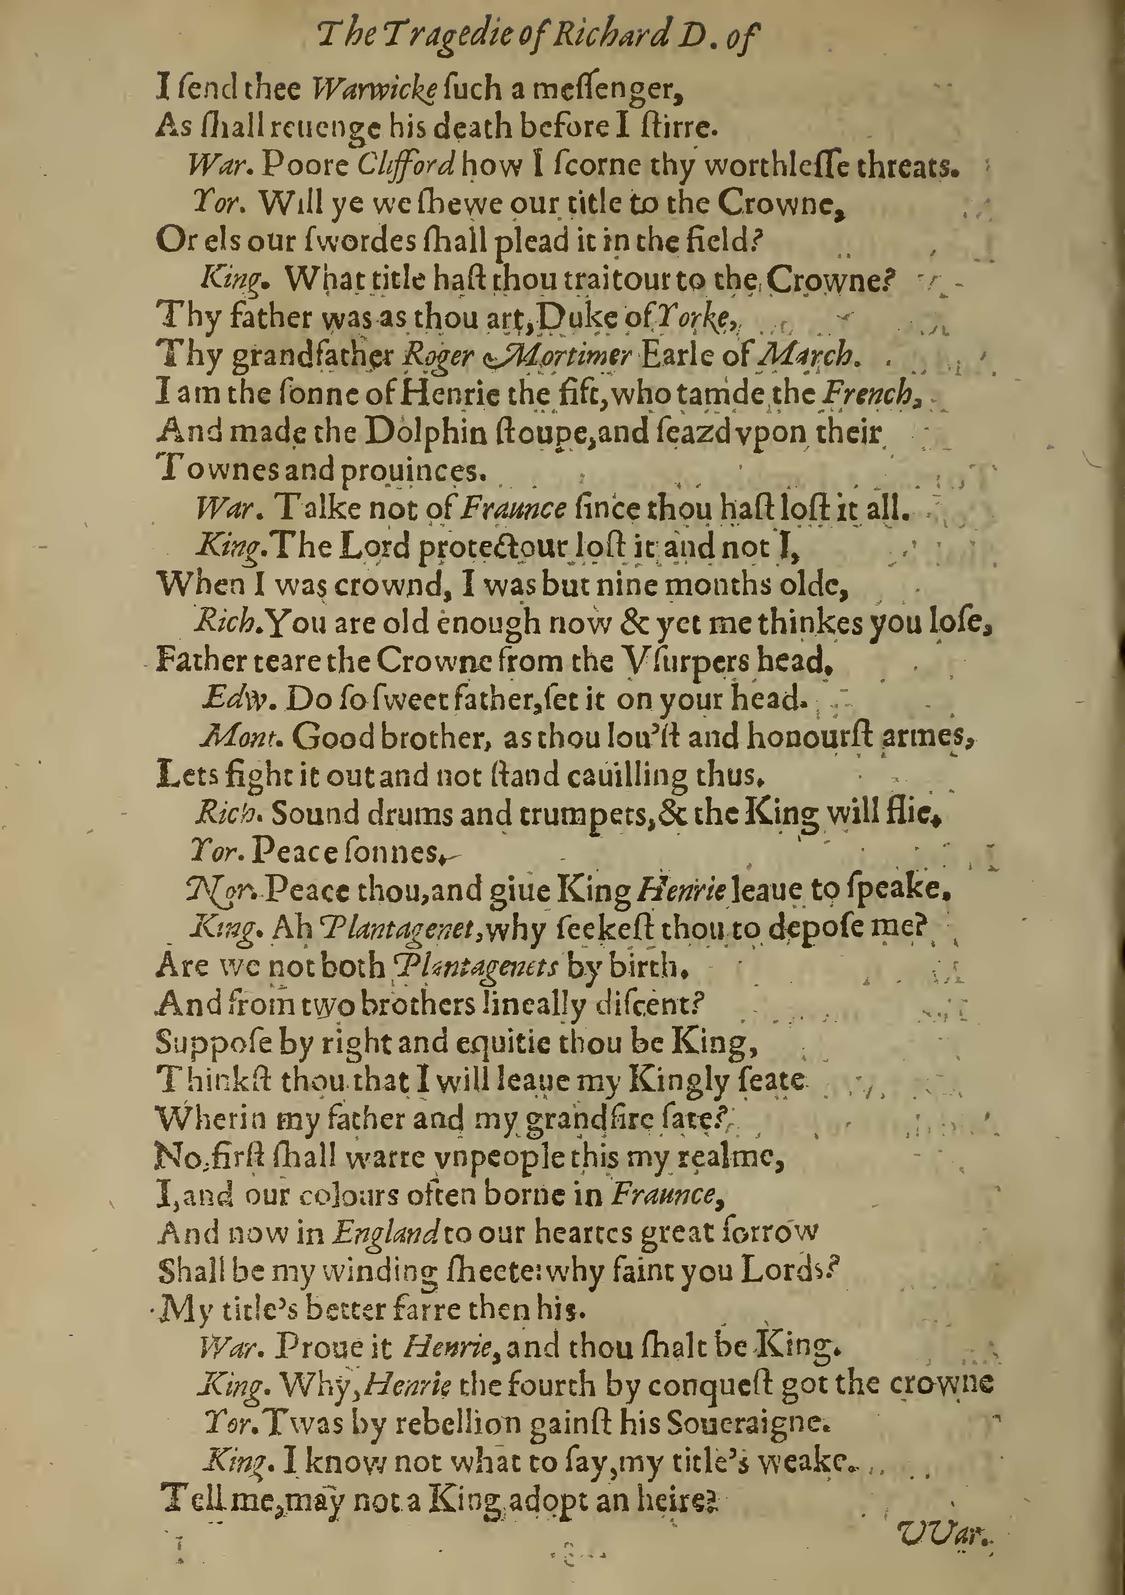 The Tragedie of Richard D. of
I ſend thee Warwicke ſuch a meſſenger,
As ſhall reuenge his death before I ſtirre.
War. Poore Clifford how I ſcorne thy worthleſſe threats.
Yor. Will ye we ſhewe our title to the Crowne,
Or els our ſwordes ſhall plead it in the field?
King. What title haſt thou traitour to the Crowne?
Thy father was as thou art, Duke of Yorke,
Thy grandfather Roger Mortimer Earle of March.
I am the ſonne of Henrie the fift, who tamde the French,
And made the Dolphin ſtoupe, and ſeazd vpon their
Townes and prouinces.
War. Talke not of Fraunce ſince thou haſt loſt it all.
King. The Lord protectour loſt it and not I,
When I was crownd, I was but nine months olde,
Rich. You are old enough now & yet me thinkes you loſe,
Father teare the Crowne from the Vſurpers head.
Edw. Do ſo ſweet father, ſet it on your head.
Mont. Good brother, as thou lou'ſt and honourſt armes,
Lets fight it out and not ſtand cauilling thus.
Rich. Sound drums and trumpets, & the King will flie.
Yor. Peace ſonnes.
Nor. Peace thou, and giue King Henrie leaue to ſpeake.
King. Ah Plantagenet, why ſeekeſt thou to depoſe me?
Are we not both Plantagenets by birth,
And from two brothers lineally diſcent?
Suppoſe by right and equitie thou be King,
Thinkſt thou that I will leaue my Kingly ſeate
Wherin my father and my grandſire ſate?
No, firſt ſhall warre vnpeople this my realme,
I, and our colours often borne in Fraunce,
And now in England to our heartes great ſorrow
Shall be my winding ſheete: why faint you Lords?
My title's better farre then his.
War. Proue it Henrie, and thou ſhalt be King.
King. Why, Henrie the fourth by conqueſt got the crowne
Yor. Twas by rebellion gainſt his Soueraigne.
King. I know not what to ſay, my title's weake.
Tell me, may not a King adopt an heire?
VVar.